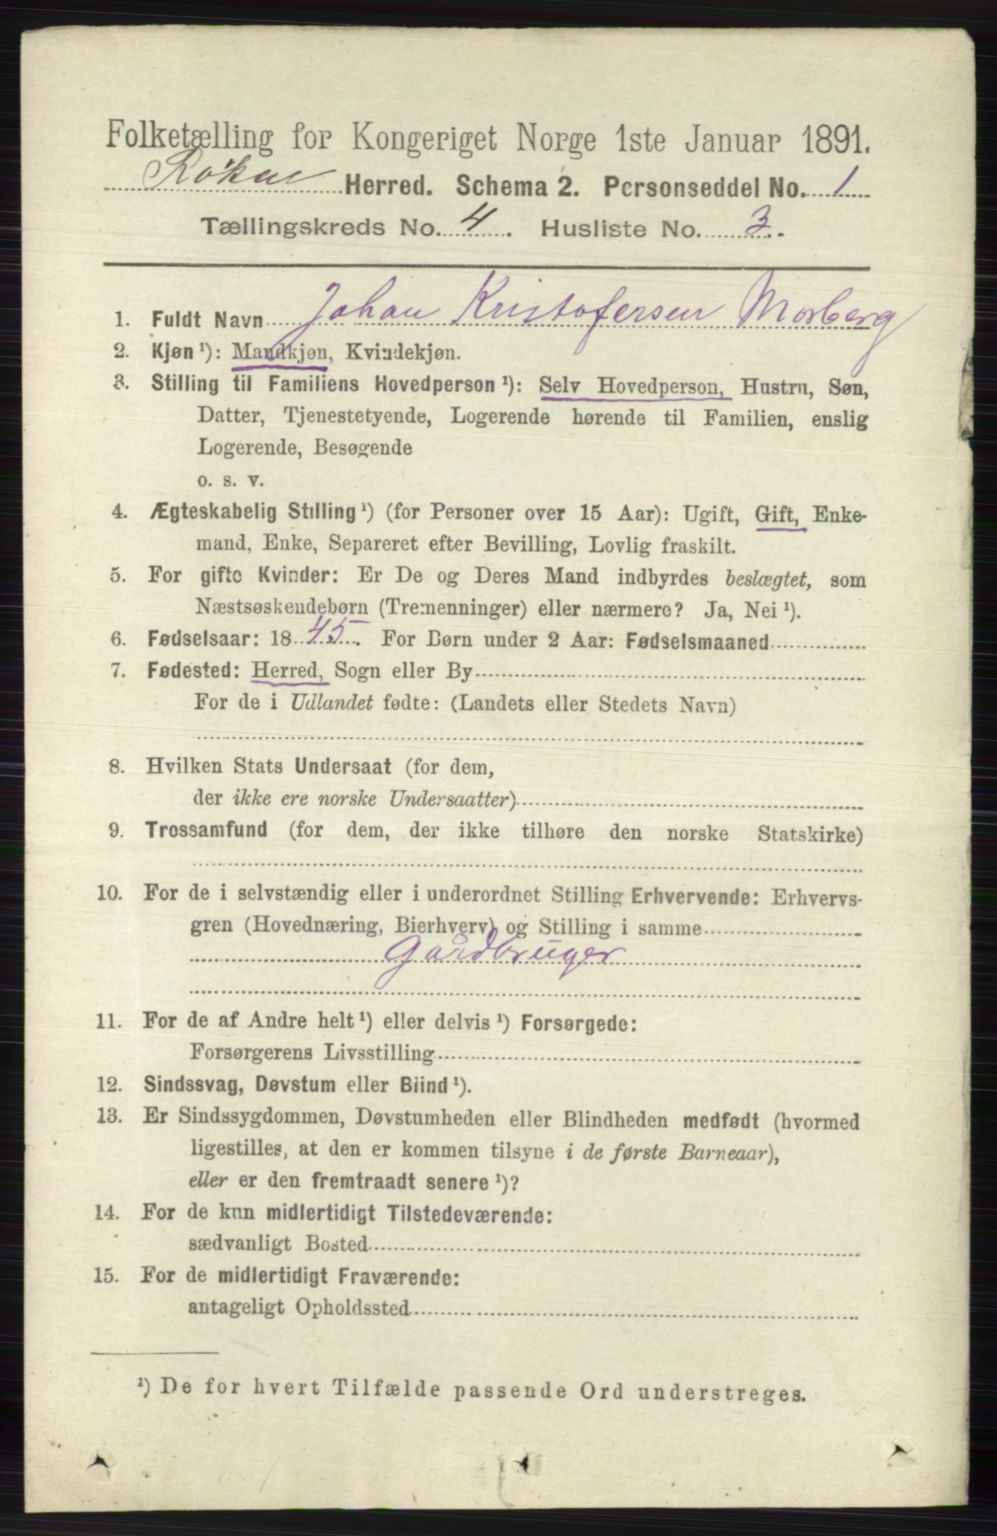 Folketælling for Kongeriget Norge 1ste Januar 1891.
Røken Herred. Schema 2. Personseddel No. 1
Tællingskreds No. 4. Husliste No. 3.
1. Fuldt Navn Johan Kristofersen Morberg
2. Kjøn¹): Mandkjøn, Kvindekjøn.
3. Stilling til Familiens Hovedperson¹): Selv Hovedperson, Hustru, Søn,
Datter, Tjenestetyende, Logerende hørende til Familien, enslig
Logerende, Besøgende
o. s. v.
4. Ægteskabelig Stilling¹) (for Personer over 15 Aar): Ugift, Gift, Enke-
mand, Enke, Separeret efter Bevilling, Lovlig fraskilt.
5. For gifte Kvinder: Er De og Deres Mand indbyrdes beslægtet, som
Næstsøskendebørn (Tremenninger) eller nærmere? Ja, Nei¹).
6. Fødselsaar: 1845. For Børn under 2 Aar: Fødselsmaaned
7. Fødested: Herred, Sogn eller By
For de i Udlandet fødte: (Landets eller Stedets Navn)
8. Hvilken Stats Undersaat (for dem,
der ikke ere norske Undersaatter)
9. Trossamfund (for dem, der ikke tilhøre den norske Statskirke)
10. For de i selvstændig eller i underordnet Stilling Erhvervende: Erhvervs-
gren (Hovednæring, Bierhverv) og Stilling i samme
Gårdbruger
11. For de af Andre helt¹) eller delvis¹) Forsørgede:
Forsørgerens Livsstilling
12. Sindssvag, Døvstum eller Blind¹).
13. Er Sindssygdommen, Døvstumheden eller Blindheden medfødt (hvormed
ligestilles, at den er kommen tilsyne i de første Barneaar),
eller er den fremtraadt senere¹)?
14. For de kun midlertidigt Tilstedeværende:
sædvanligt Bosted
15. For de midlertidigt Fraværende:
antageligt Opholdssted
¹) De for hvert Tilfælde passende Ord understreges.